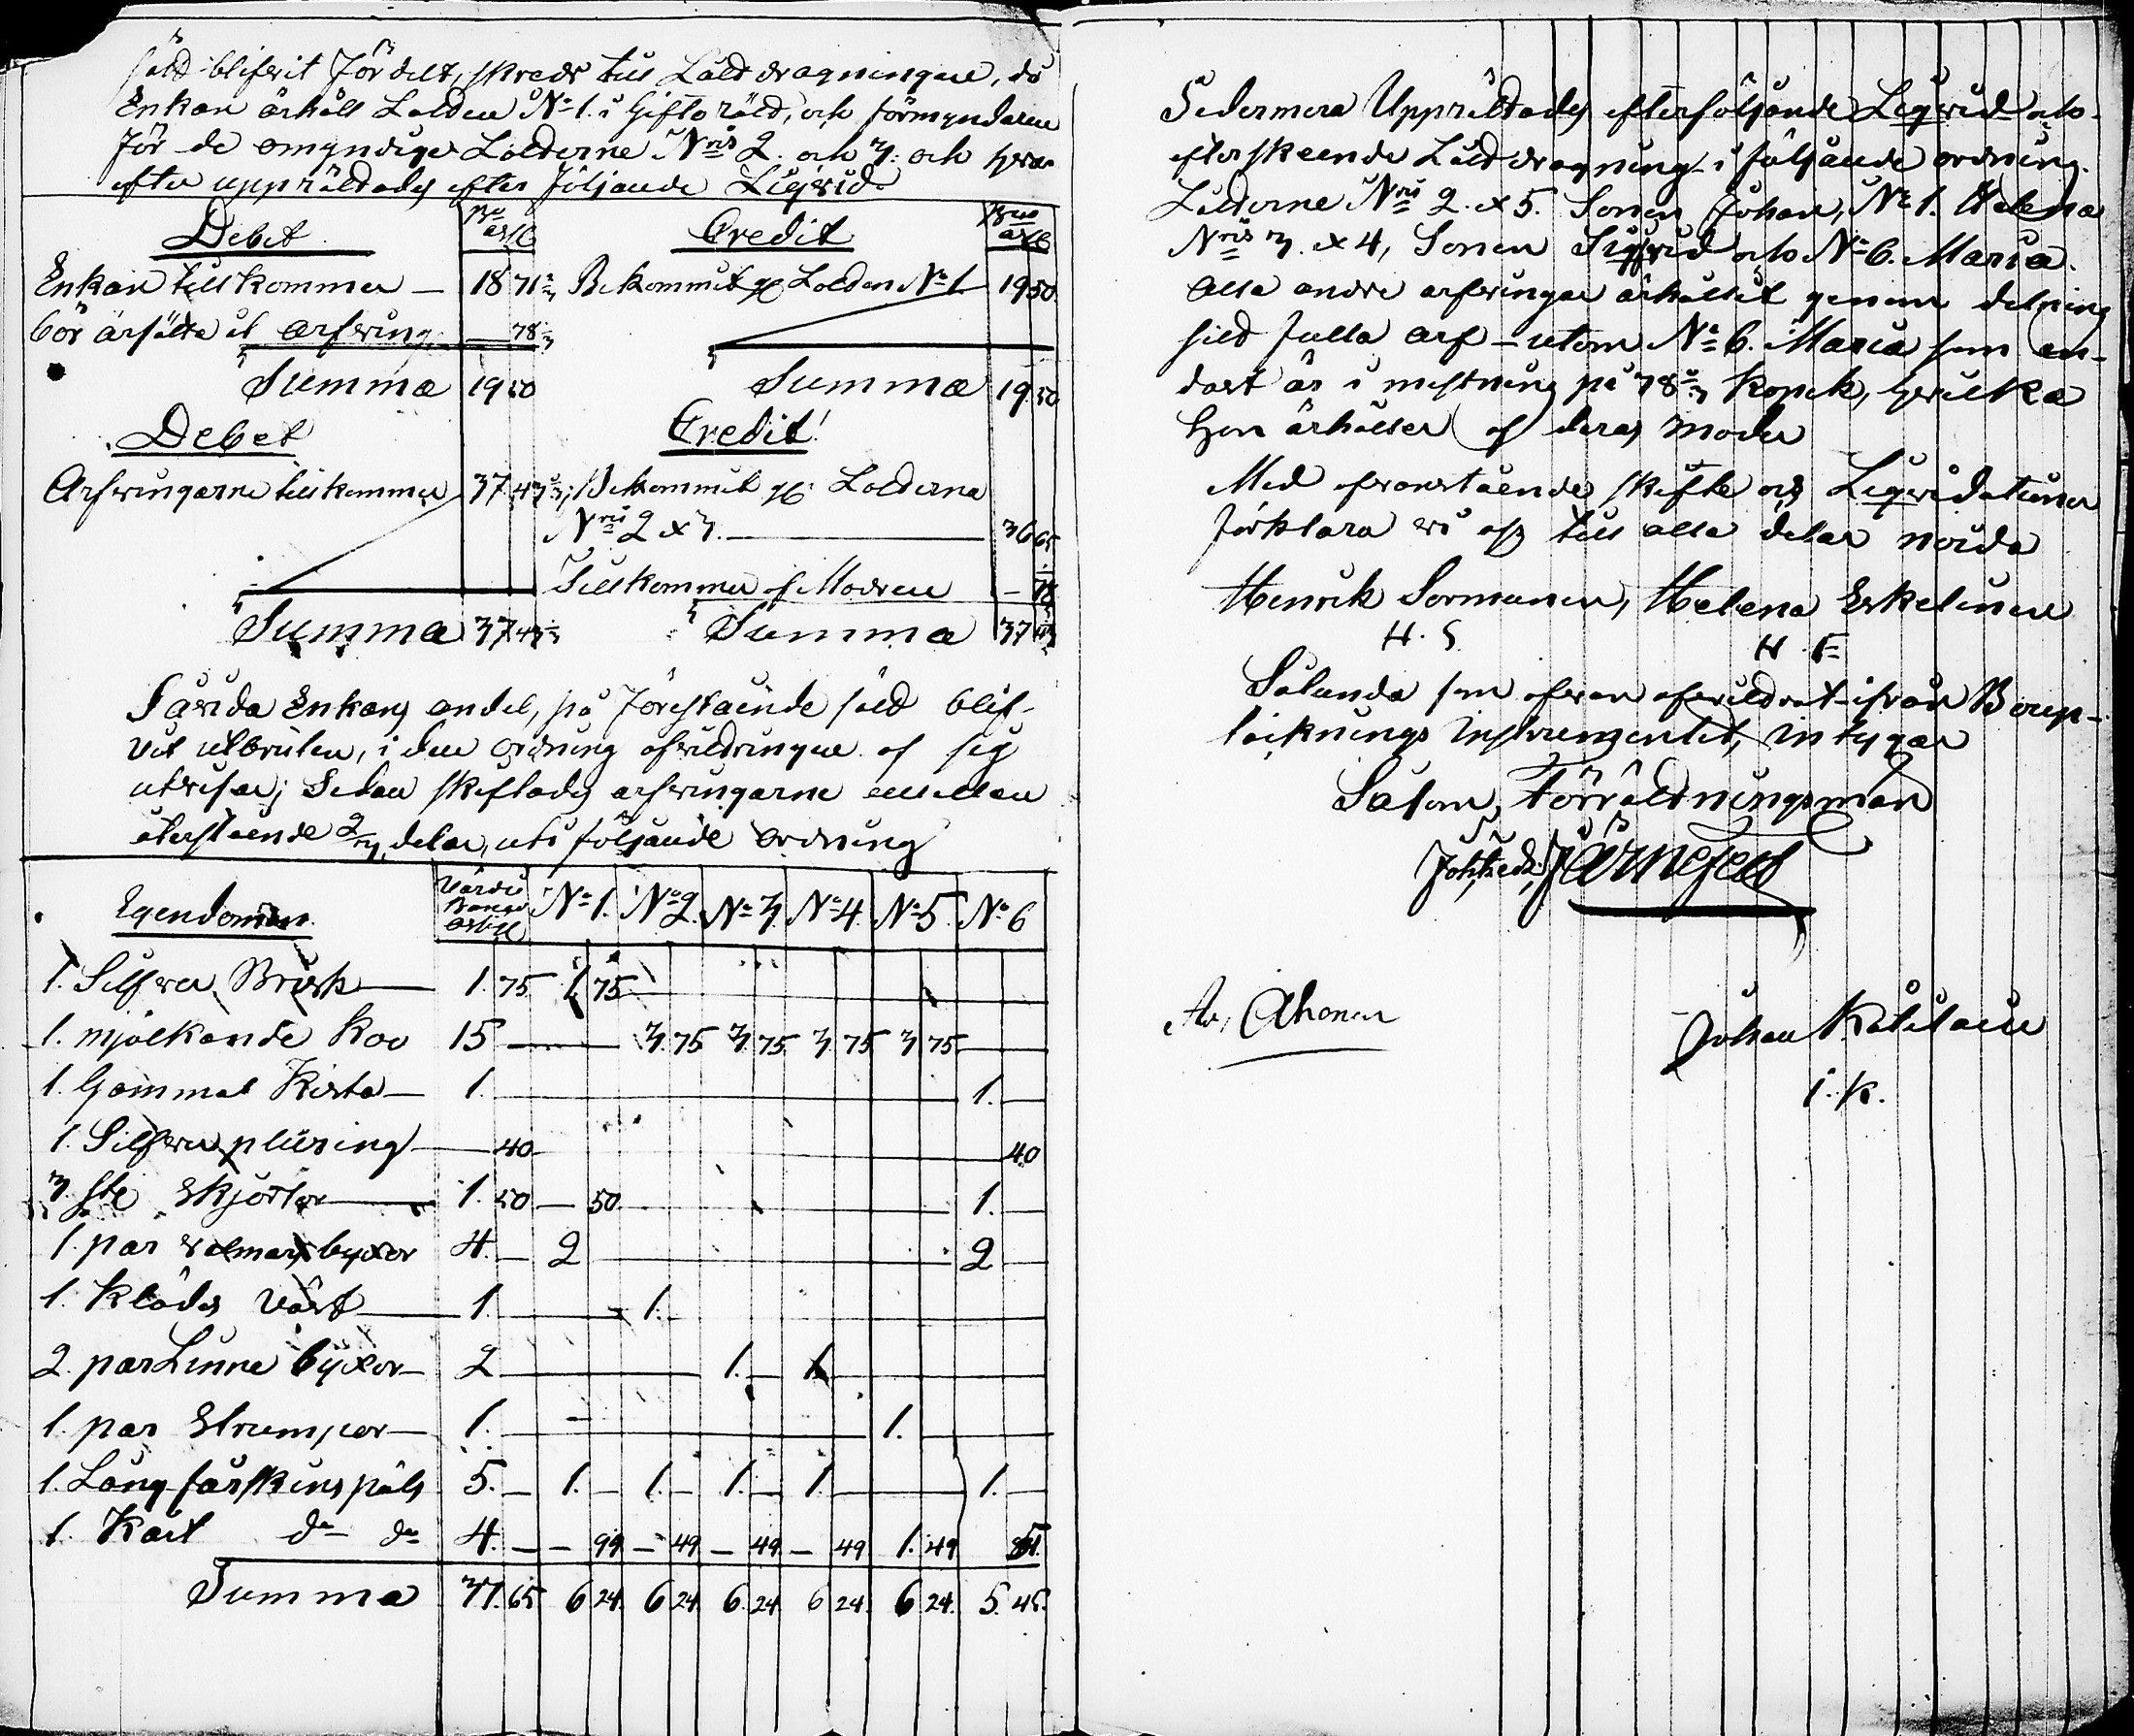 sådt blifvit fördelt, skreds till Låldtdragningen, då
Enkan ärhåll Lolden No 1. i Giftorått, och förmyndaren
för de omyndiga Lolderne Nris 2. och 3. och hvar
efter upprättades efter följande Liqvid
Debet Credit
Enkan tillkommer — 18 71 2/3 Bekommit ge Lolden No 1 19 50
bör ärsätta åt arfving — 78 1/3
Summa 19 50 Summa 19 50
Debet Credit
Arfvingarne tillkommer 37 43 1/3 Bekommit ge Lolderna
Nris 2 & 3. — 36 65
Tillkommer af Modren — 78
Summa 37 43 1/3 Summa 37 43
Såvida Enkans andel, på föreståënde sätt blif-
vit utbruten, i den ordning afvittringen af sig
utvisar; Sedan skiftades arfvingarne emellan
återstående 2/3 delar, uti följande ordning
Egendomen Värde Banco Ass. No 1. No 2. No 3 No 4. No 5. No 6
1. Silfver Brisk — 1. 75 1 75
1. mjölkande Koo 15 — 3. 75 3. 75 3 75 3 75
1. Gammal Kista — 1. — 1.
1. Silfver plüsing — 40 — 40
3. ste Skjortor — 1. 50 — 50 — 1.
1. par valmars byxor 4. — 2 — 2
1. Klädes väst — 1. — 1.
2. par Linne byxor — 2 — 1. — 1
1. par Strumpor — 1. — 1.
1. Lång fårskins päls 5. — 1. — 1. — 1. — 1. — 1.
1. Kort do do 4. — — 99 — 49 — 49 — 49 1. 49 51.
Summa 31. 65 6 24. 6 24 6. 24 6 24. 6 24. 5. 45.
Sedermera Upprättades efterföljande Liqvid och
efterskeende Låttdragning i följande ordning.
Låtterne Nris 2. & 5. Sonen Johan, No 1. Helena
Nris 3. & 4, Sonen Sigfrid och No 6. Maria.
Alla andre arfvingar ärhållit genom delning
sitt fulla arf — utom No 6. Maria som en-
dast är i mistning på 78 1/3 kopek, hvilka
hon ärhåller af deras moder
Med ofvanstående skifte och Liqvidationer
förklara vi oss till alla delar nöida
Henrik Sormunen, Helena Eskelinen
H. S. H. E
Sålunda som ofvan afvittrat ifrån Boupp-
teiknings Instrumentet, intygar
Såsom, Förrättningsman
Joh: Fredr: Järnefelt
A., Ahonen Johan Kåtilaine
I. K.